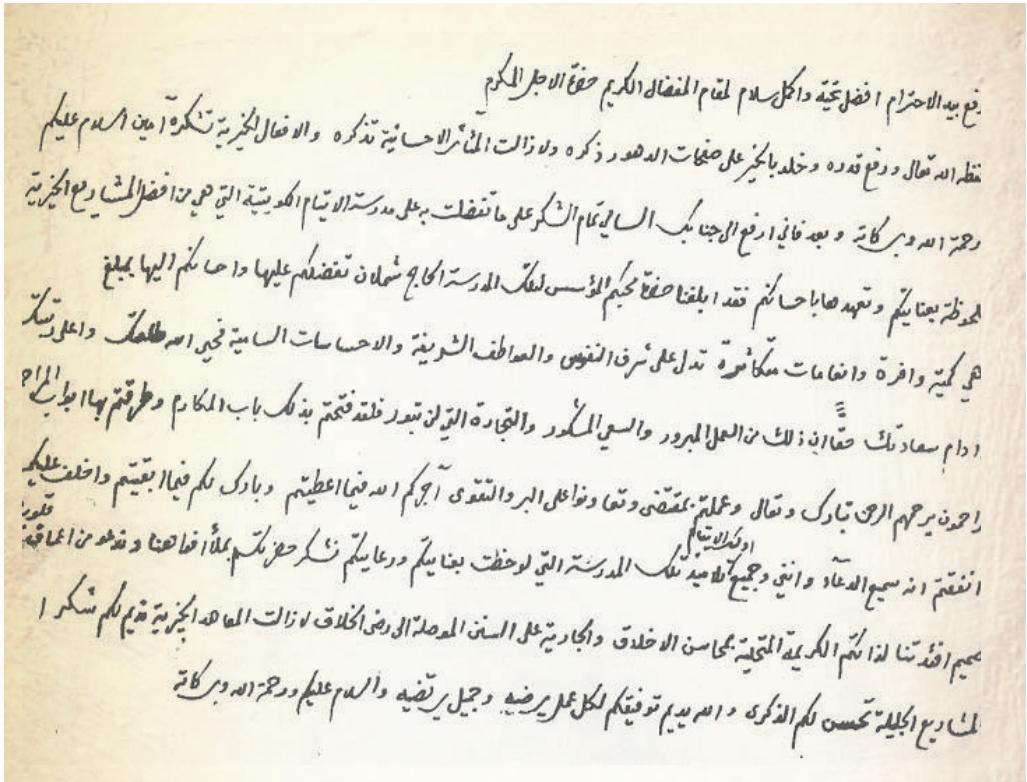 رفع بيد الاحترام افضل تحية واكمل سلام لمقام المفضال الكريم حضرة الاجل المكرم
حفظه الله تعالى ورفع قدره وخلد بالخير على صفحات الدهور ذكره ولا زالت المئاثر الاحسانية تذكره والافعال الخيرية تشكره آمين السلام عليكم
ورحمة الله وبركاته وبعد فاني ارفع الى جنابك السامي تمام الشكر على ما تفضلت به على مدرسة الايتام الكويتية التي هي من افضل المشاريع الخيرية
لملحوظة بعنايتكم وتعهدها باحسانكم فقد ابلغنا حضرة محبكم المؤسس لتلك المدرسة الحاج شملان تفضلكم عليها واحسانكم اليها بمبلغ
هي كمية وافرة وانعامات متكاثرة تدل على شرف النفوس والعواطف الشريفة والاحساسات السامية فحيى الله طلعتك واعلى رتبتك
وادام سعادتك حقًا ان ذلك من العمل المبرور والسعي المشكور والتجارة التي لن تبور فلقد فتحتم بذلك باب المكارم وطرقتم بها ابواب المراحم
الراحمون يرحمهم الرحمن تبارك وتعالى وعملتم بمقتضى وتعاونوا على البر والتقوى آجركم الله فيما اعطيتم وبارك لكم فيما ابقيتم واخلف عليكم
انفقتم انه سميع الدعآء وانني وجميع تلاميذ تلك المدرسة اولئك الايتام التي لوحظت بعنايتكم ورعايتكم نشكر حضرتكم بملأ افواهنا وندعو من اعماق قلوبنا
صميم افئدتنا لذاتكم الكريمة المتحلية بمحاسن الاخلاق والجارية على السنن الموصلة الى رضى الخلاق لا زالت المعاهد الخيرية تديم لكم شكرا
المشاريع الجليلة تحسن لكم الذكرى والله يديم توفيقكم لكل عمل يرضيه وجميل يرتضيه والسلام عليكم ورحمة الله وبركاته